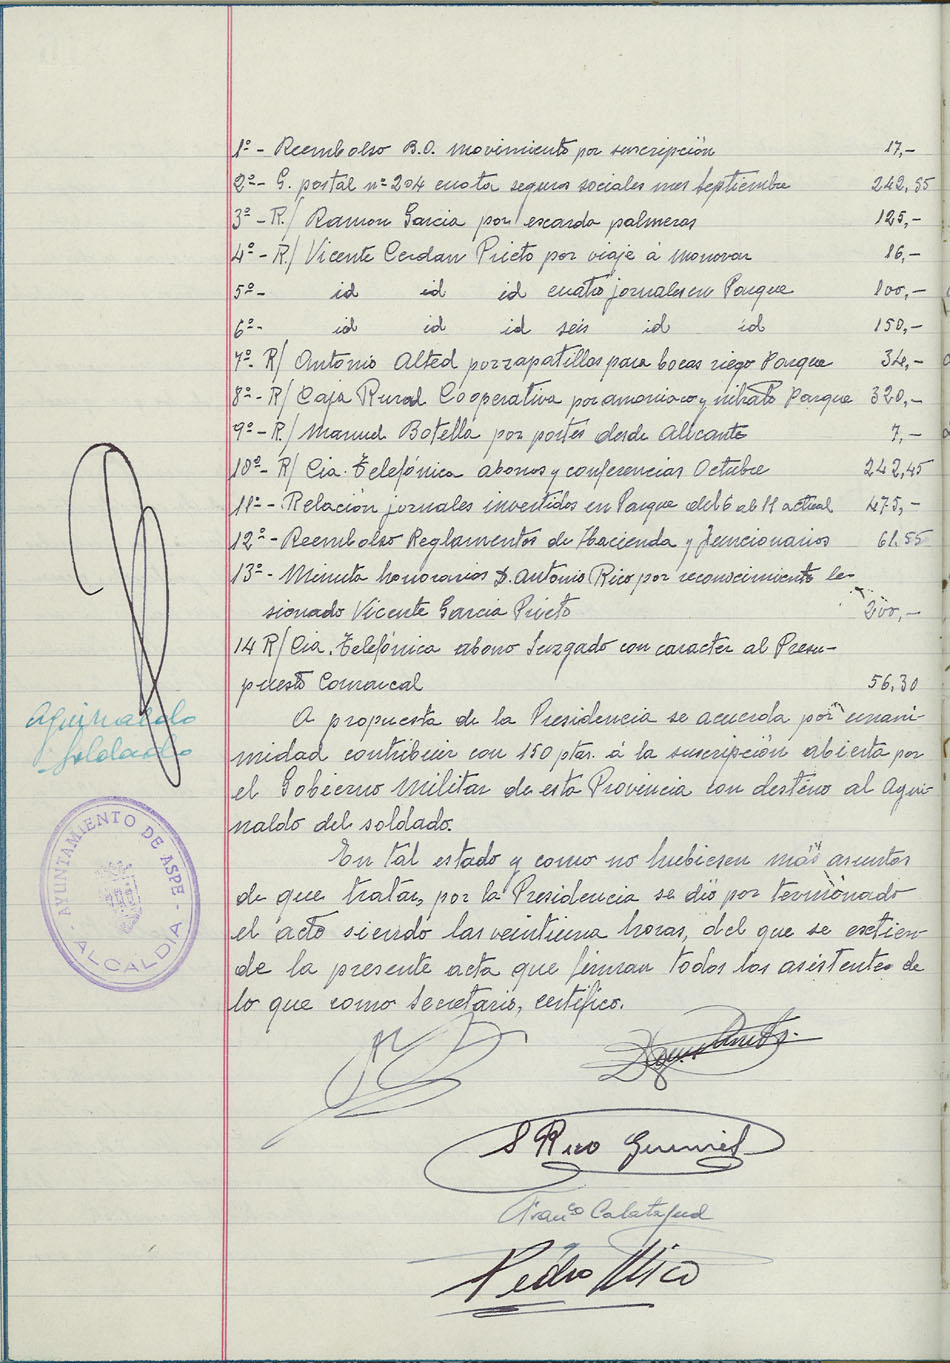 1º - Reembolso B.O. movimiento por suscripción 17,-
2º - G. postal nº 204 cuota seguros sociales mes Septiembre 242,55
3º - R/ Ramon Garcia por escarda palmeras 125,-
4º - R/ Vicente Cerdan Prieto por viaje á Monovar 16,-
5º - id id id cuatro jornales en Parque 100,-
6º - id id id seis id id 150,-
7º. R/ Antonio Alted por zapatillas para bocas riego Parque 34,-
8º - R/ Caja Rural Cooperativa por amoniaco y nitrato Parque 320,-
9º - R/ Manuel Botella por portes desde Alicante 7,-
10º - R/ Cia. Telefónica abonos y conferencias Octubre 242,45
11º - Relación jornales invertidos en Parque del 6 al 11 actual 475,-
12º - Reembolso Reglamentos de Hacienda y funcionarios 61.55
13º - Minuta honorarios D. Antonio Rico por reconocimiento le-
sionado Vicente Garcia Prieto 200,-
14 R/ Cia. Telefónica abono Juzgado con caracter al Presu-
puesto Comarcal 56,30
A propuesta de la Presidencia se acuerda por unani-
midad contribuir con 150 ptas. á la suscripción abierta por
el Gobierno Militar de esta Provincia con destino al Agui-
naldo del soldado.
Aguinaldo
soldado
En tal estado y como no hubiesen más asuntos
de que tratar, por la Presidencia se dió por terminado
el acto siendo las veintiuna horas, del que se extien-
de la presente acta que firman todos los asistentes de
lo que como Secretario, certifico.
AYUNTAMIENTO DE ASPE
- ALCALDIA -
S Rico
Franco Calatayud
Pedro Mico